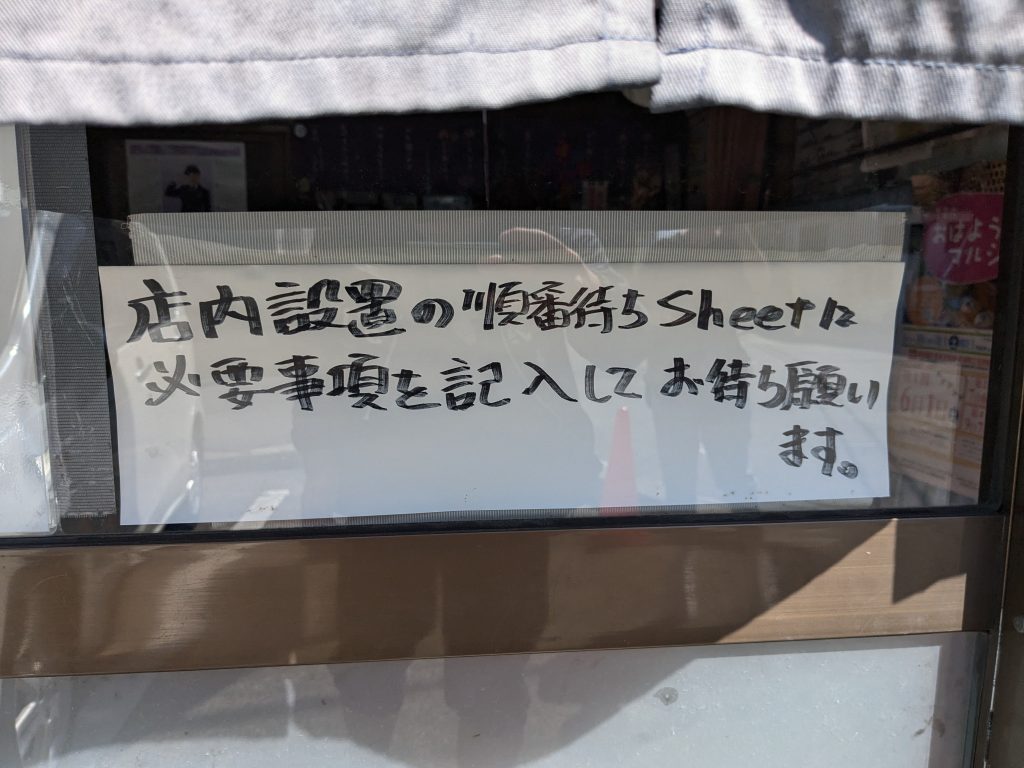 店内設置の順番待ちSheetに
必要事項を記入してお待ち願い
ます。
おはよう
マルシ